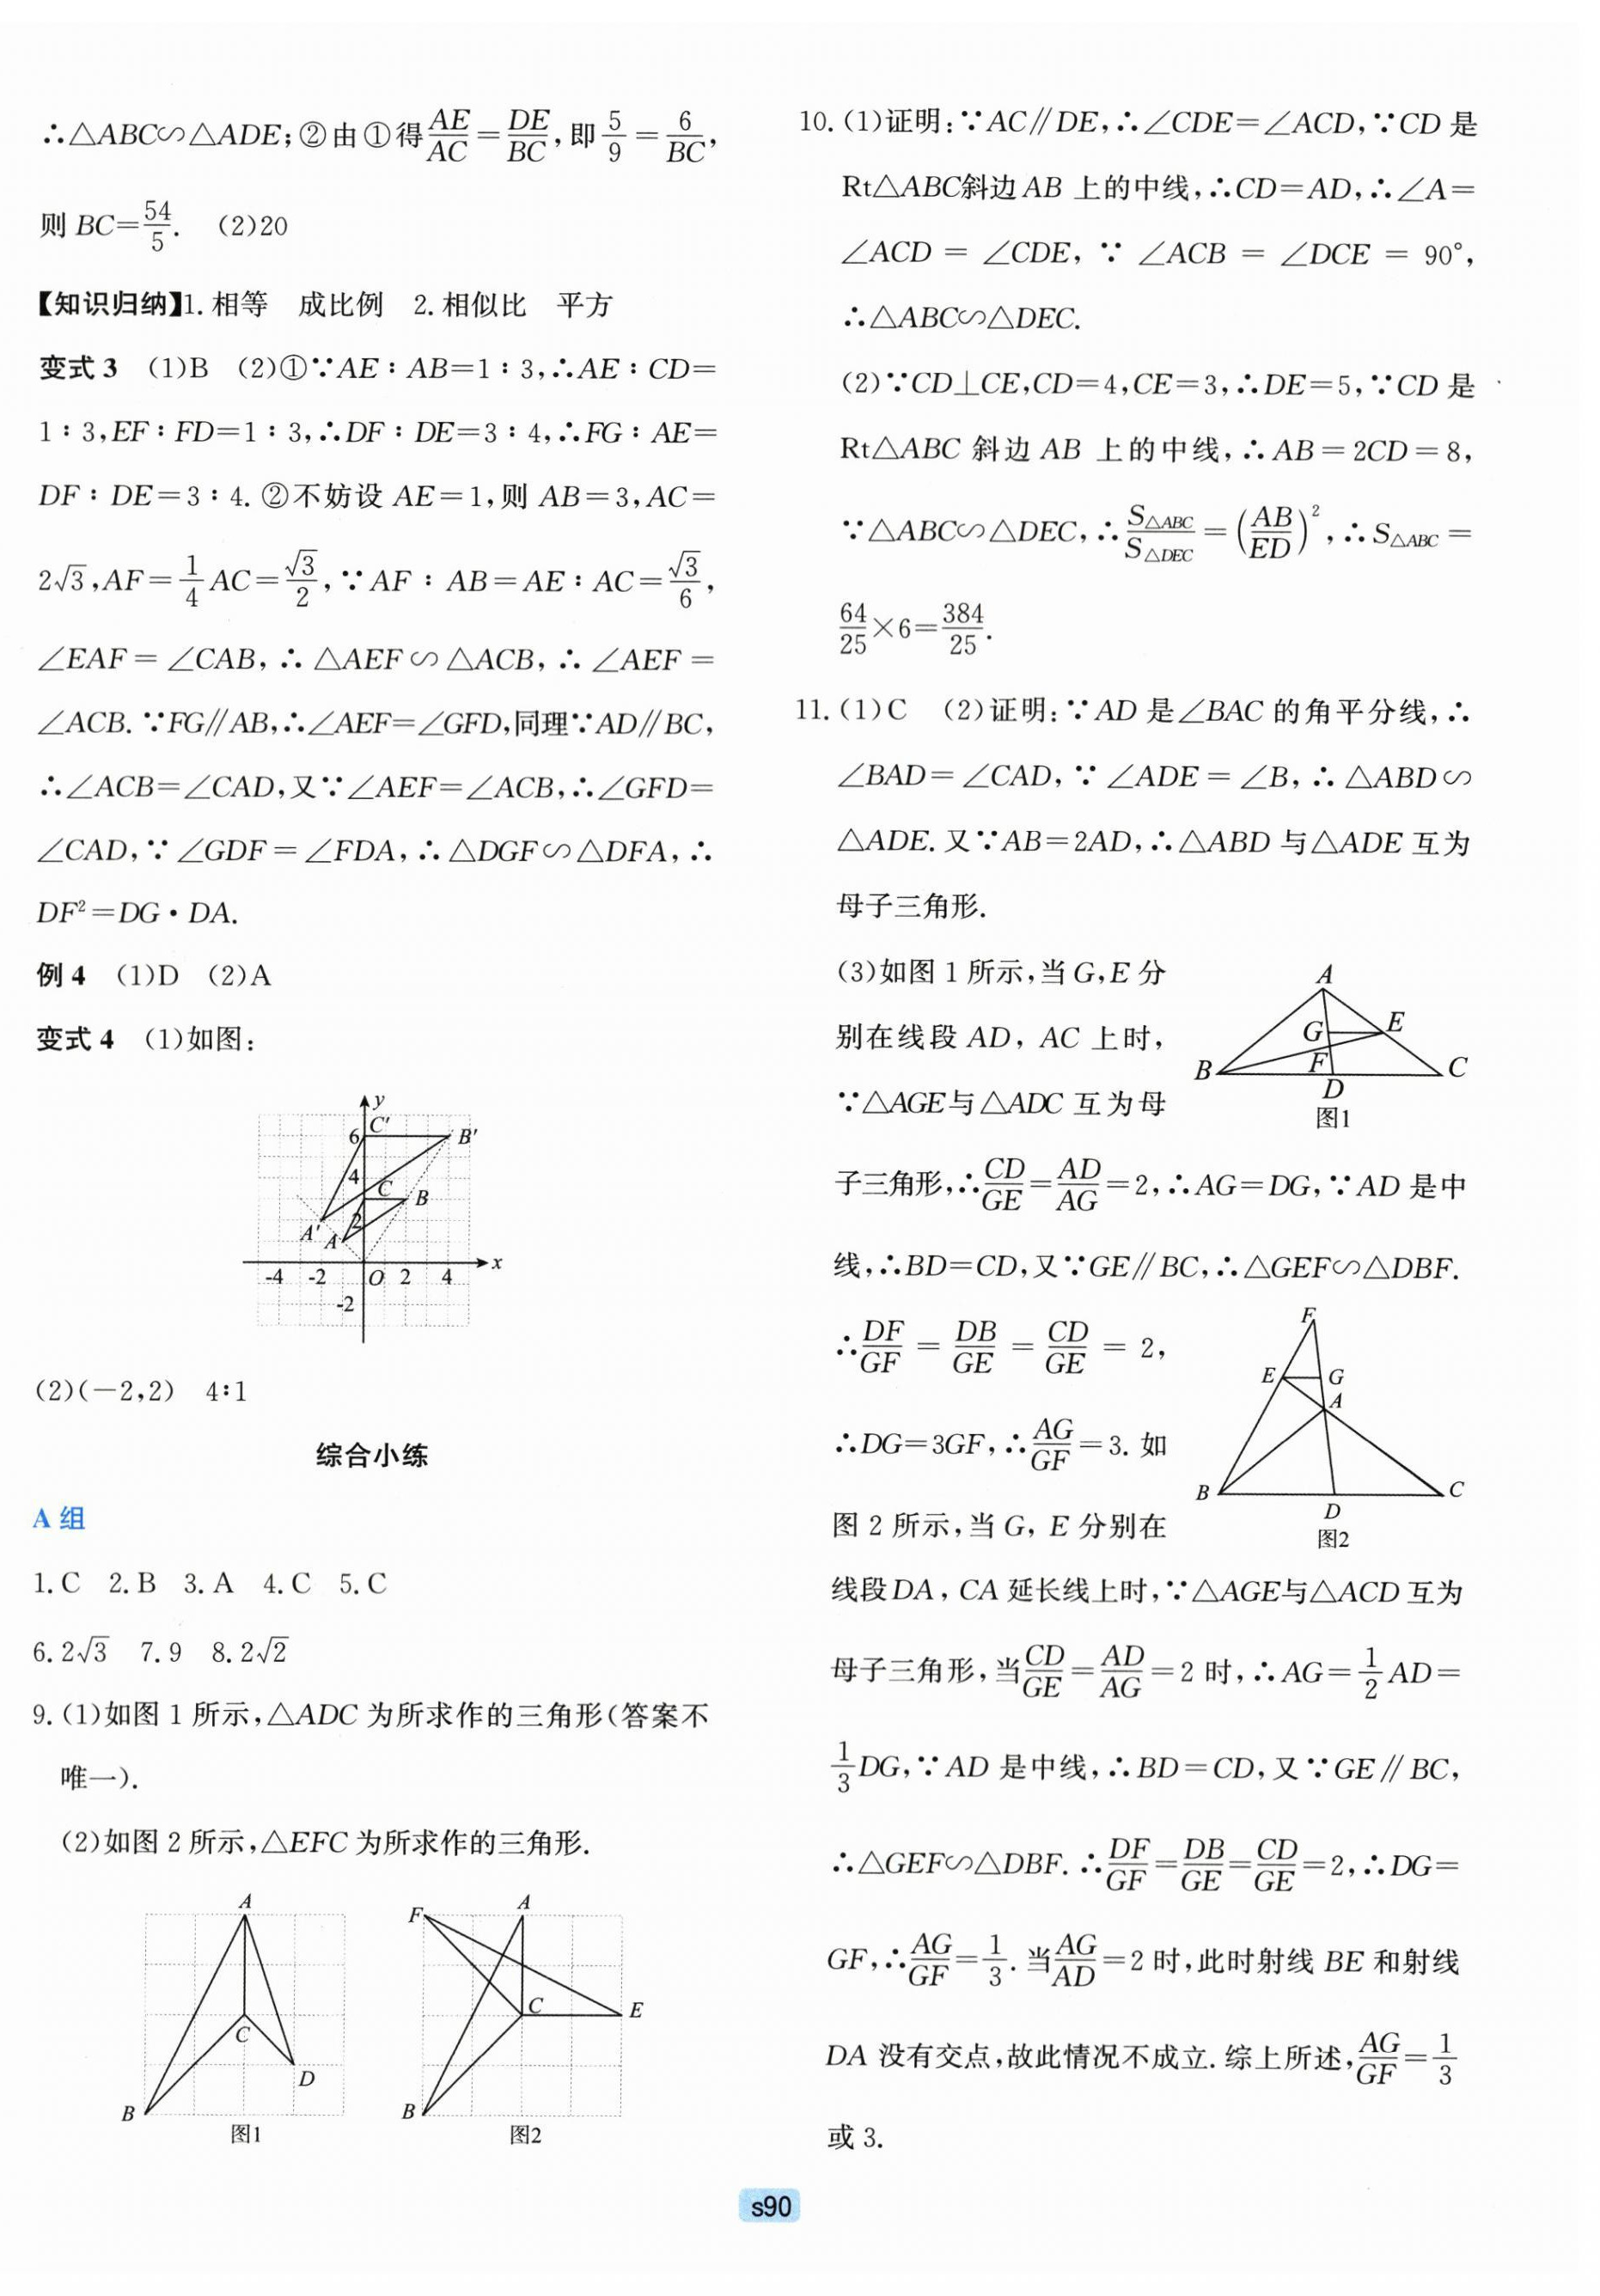 ∴△ABC∽△ADE;②由①得AE/AC=DE/BC,即5/9=6/BC,
则BC=54/5. (2)20
【知识归纳】1.相等 成比例 2.相似比 平方
变式3 (1)B (2)①∵AE∶AB=1∶3,∴AE∶CD=
1∶3,EF∶FD=1∶3,∴DF∶DE=3∶4,∴FG∶AE=
DF∶DE=3∶4.②不妨设AE=1,则AB=3,AC=
2√3,AF=1/4AC=√3/2,∵AF∶AB=AE∶AC=√3/6,
∠EAF=∠CAB,∴△AEF∽△ACB,∴∠AEF=
∠ACB.∵FG∥AB,∴∠AEF=∠GFD,同理∵AD∥BC,
∴∠ACB=∠CAD,又∵∠AEF=∠ACB,∴∠GFD=
∠CAD,∵∠GDF=∠FDA,∴△DGF∽△DFA,∴
DF²=DG·DA.
例4 (1)D (2)A
变式4 (1)如图:
y
C′
6
B′
4
C
B
2
A′
A
-4 -2 O 2 4 x
-2
(2)(-2,2) 4∶1
综合小练
A组
1.C 2.B 3.A 4.C 5.C
6.2√3 7.9 8.2√2
9.(1)如图1所示,△ADC为所求作的三角形(答案不
唯一).
(2)如图2所示,△EFC为所求作的三角形.
A
C
D
B
图1
F
A
C
E
B
图2
10.(1)证明:∵AC∥DE,∴∠CDE=∠ACD,∵CD是
Rt△ABC斜边AB上的中线,∴CD=AD,∴∠A=
∠ACD=∠CDE,∵∠ACB=∠DCE=90°,
∴△ABC∽△DEC.
(2)∵CD⊥CE,CD=4,CE=3,∴DE=5,∵CD是
Rt△ABC斜边AB上的中线,∴AB=2CD=8,
∵△ABC∽△DEC,∴S△ABC/S△DEC=(AB/ED)²,∴S△ABC=
64/25×6=384/25.
11.(1)C (2)证明:∵AD是∠BAC的角平分线,∴
∠BAD=∠CAD,∵∠ADE=∠B,∴△ABD∽
△ADE.又∵AB=2AD,∴△ABD与△ADE互为
母子三角形.
(3)如图1所示,当G,E分
别在线段AD,AC上时,
∵△AGE与△ADC互为母
A
G
E
B
F
C
D
图1
子三角形,∴CD/GE=AD/AG=2,∴AG=DG,∵AD是中
线,∴BD=CD,又∵GE∥BC,∴△GEF∽△DBF.
∴DF/GF=DB/GE=CD/GE=2,
∴DG=3GF,∴AG/GF=3.如
图2所示,当G,E分别在
F
E
G
A
B
C
D
图2
线段DA,CA延长线上时,∵△AGE与△ACD互为
母子三角形,当CD/GE=AD/AG=2时,∴AG=1/2AD=
1/3DG,∵AD是中线,∴BD=CD,又∵GE∥BC,
∴△GEF∽△DBF.∴DF/GF=DB/GE=CD/GE=2,∴DG=
GF,∴AG/GF=1/3.当AG/AD=2时,此时射线BE和射线
DA没有交点,故此情况不成立.综上所述,AG/GF=1/3
或3.
s90